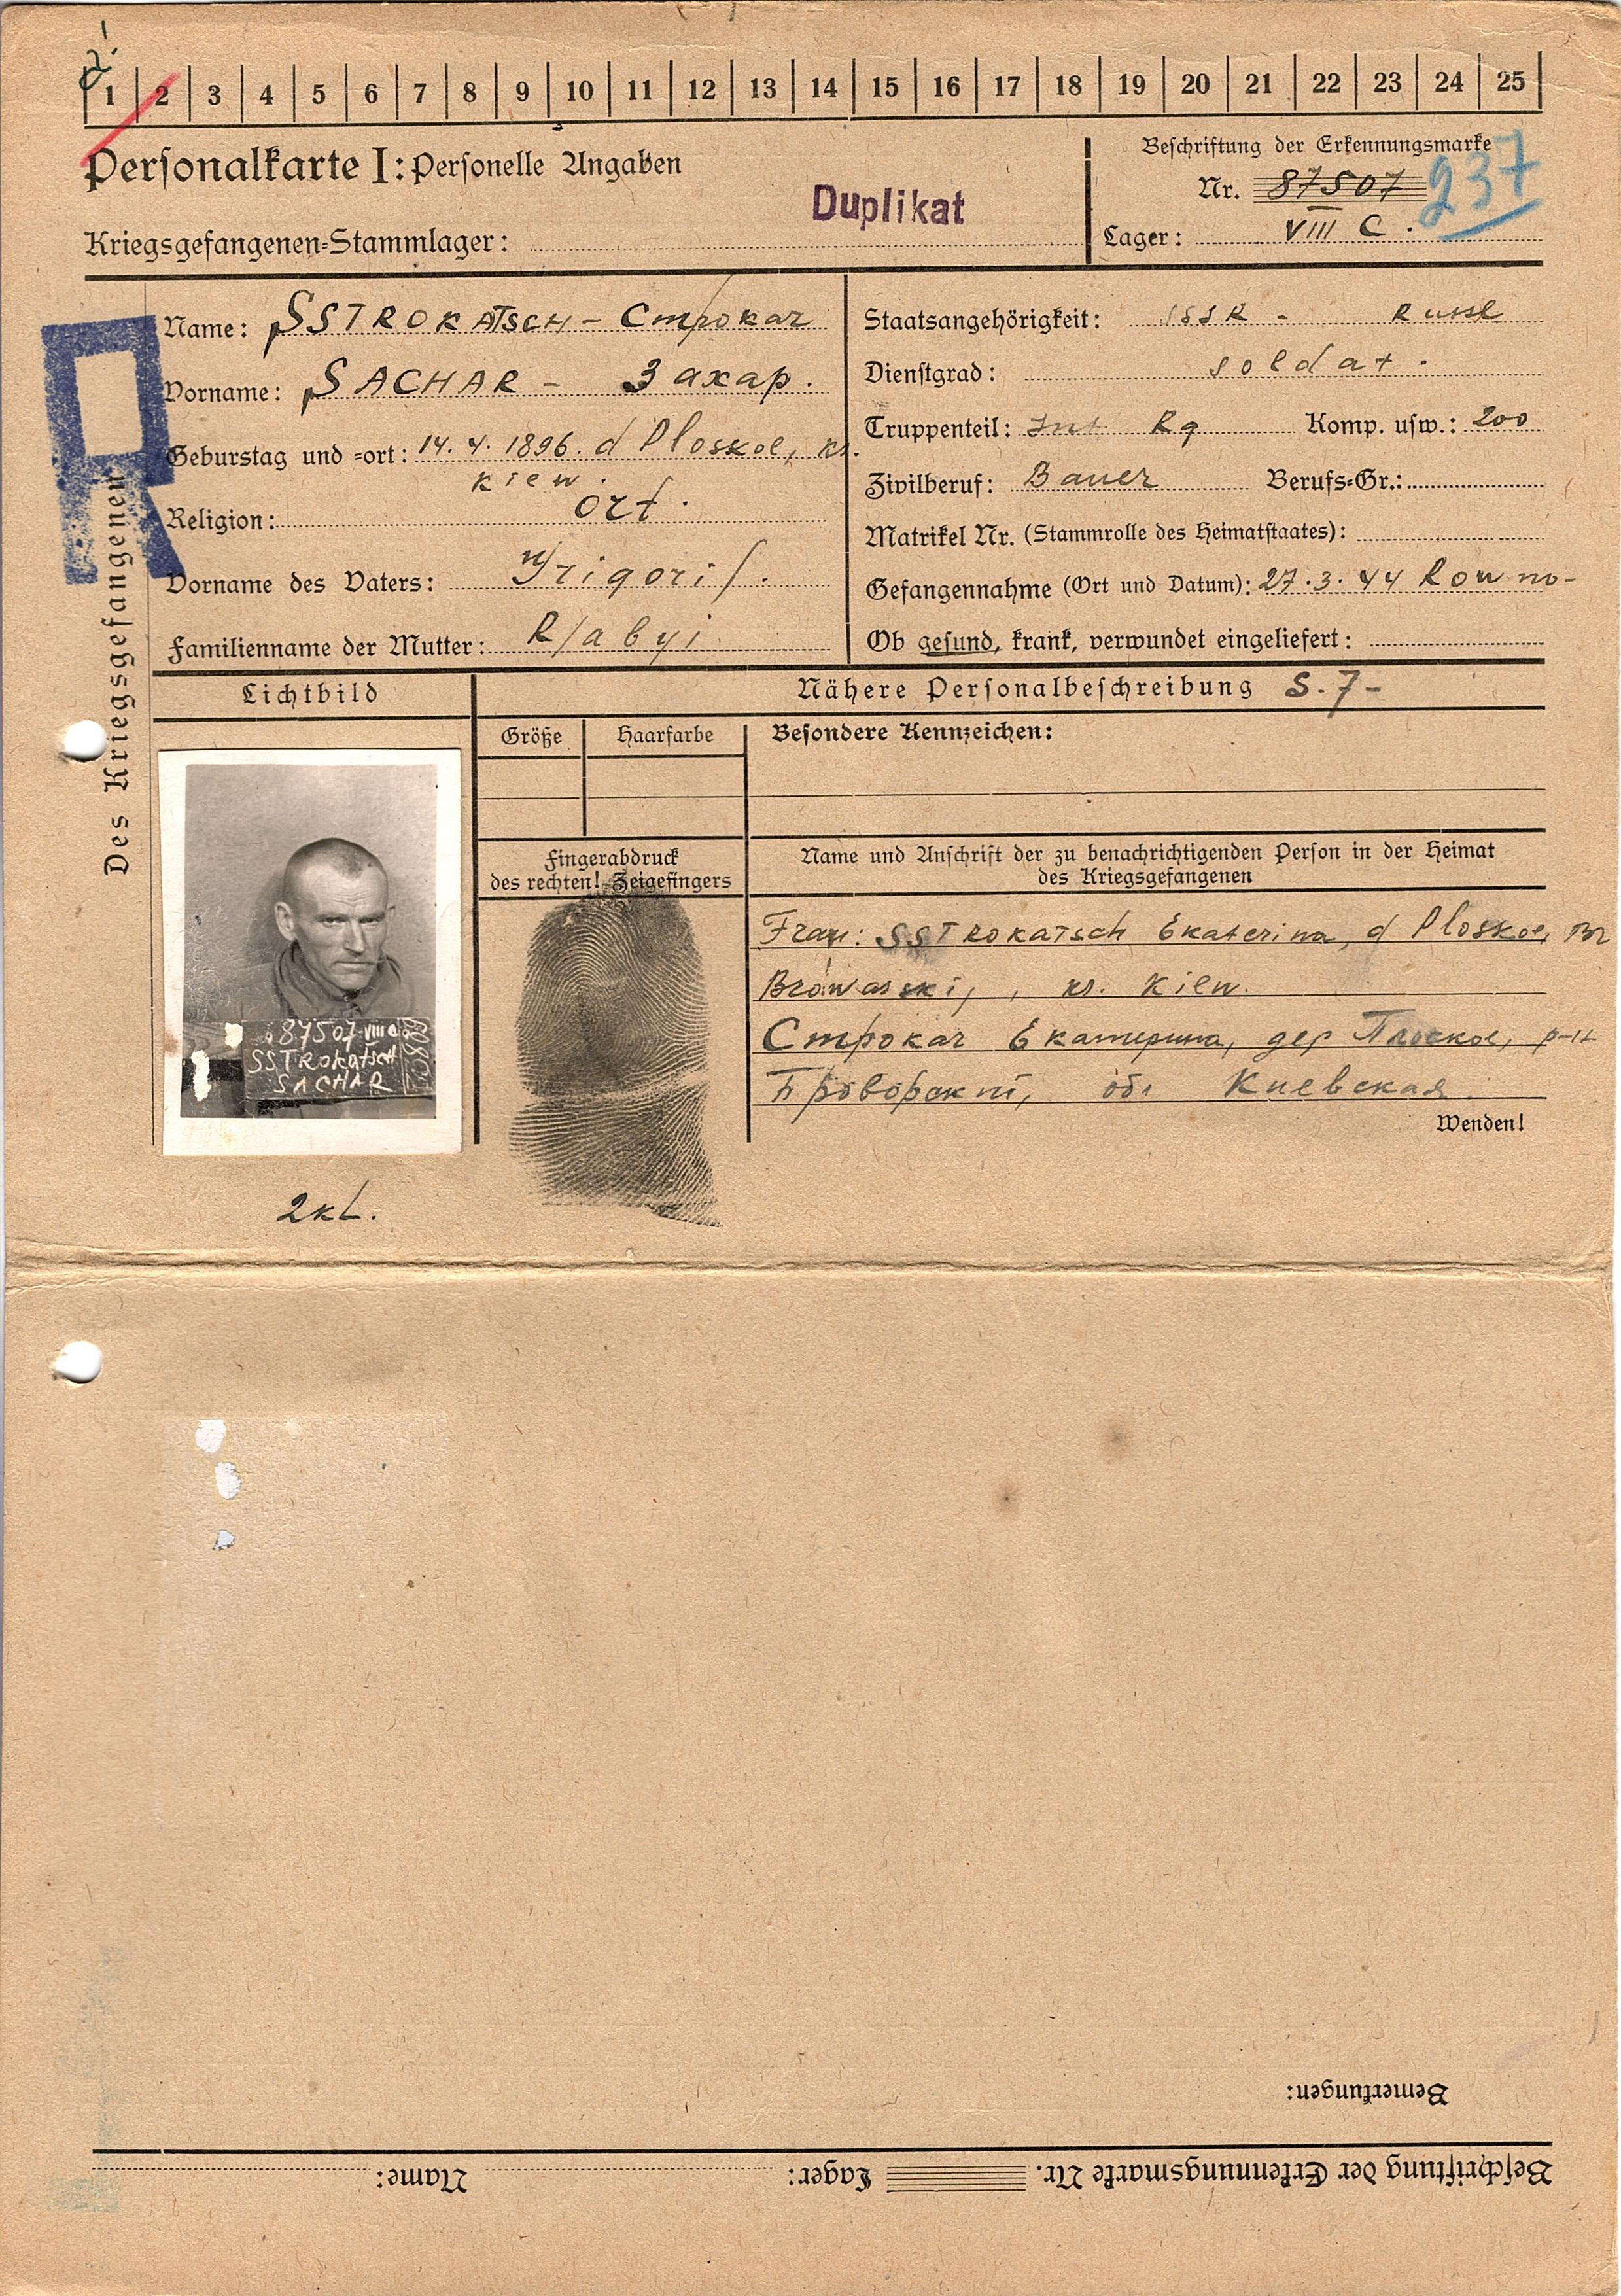 1 2 3 4 5 6 7 8 9 10 11 12 13 14 15 16 17 18 19 20 21 22 23 24 25
Personalkarte I: Personelle Angaben
Duplikat
Beschriftung der Erkennungsmarke
Nr. 87507 237
Kriegsgefangenen-Stammlager:
Lager: VIII C.
R
Des Kriegsgefangenen
Name: SSTROKATSCH – Строкач
Vorname: SACHAR – Захар.
Geburstag und -ort: 14.4.1896. d Ploskoe, kr.
kiew.
Religion: ort.
Vorname des Vaters: Grigorij.
Familienname der Mutter: Rjabyi
Staatsangehörigkeit: SSSR - Russe
Dienstgrad: soldat.
Truppenteil: Inf. Rg Komp. usw.: 200
Zivilberuf: Bauer Berufs-Gr.:
Matrikel Nr. (Stammrolle des Heimatstaates):
Gefangennahme (Ort und Datum): 27.3.44 Rowno-
Ob gesund, krank, verwundet eingeliefert:
Lichtbild
Nähere Personalbeschreibung S.7-
Größe Haarfarbe Besondere Kennzeichen:
Fingerabdruck
des rechten! Zeigefingers
Name und Anschrift der zu benachrichtigenden Person in der Heimat
des Kriegsgefangenen
Frau: SSTROKATSCH Ekaterina, d Ploskoe,
Browarskij, kr. Kiew.
Строкач Екатерина, дер Плоское, р-н
Броворский, обл Киевская.
Wenden!
87507 VIII C
SSTROKatscH
SACHAR
2kl.
Bemerkungen:
Beschriftung der Erkennungsmarke Nr. Lager: Name: